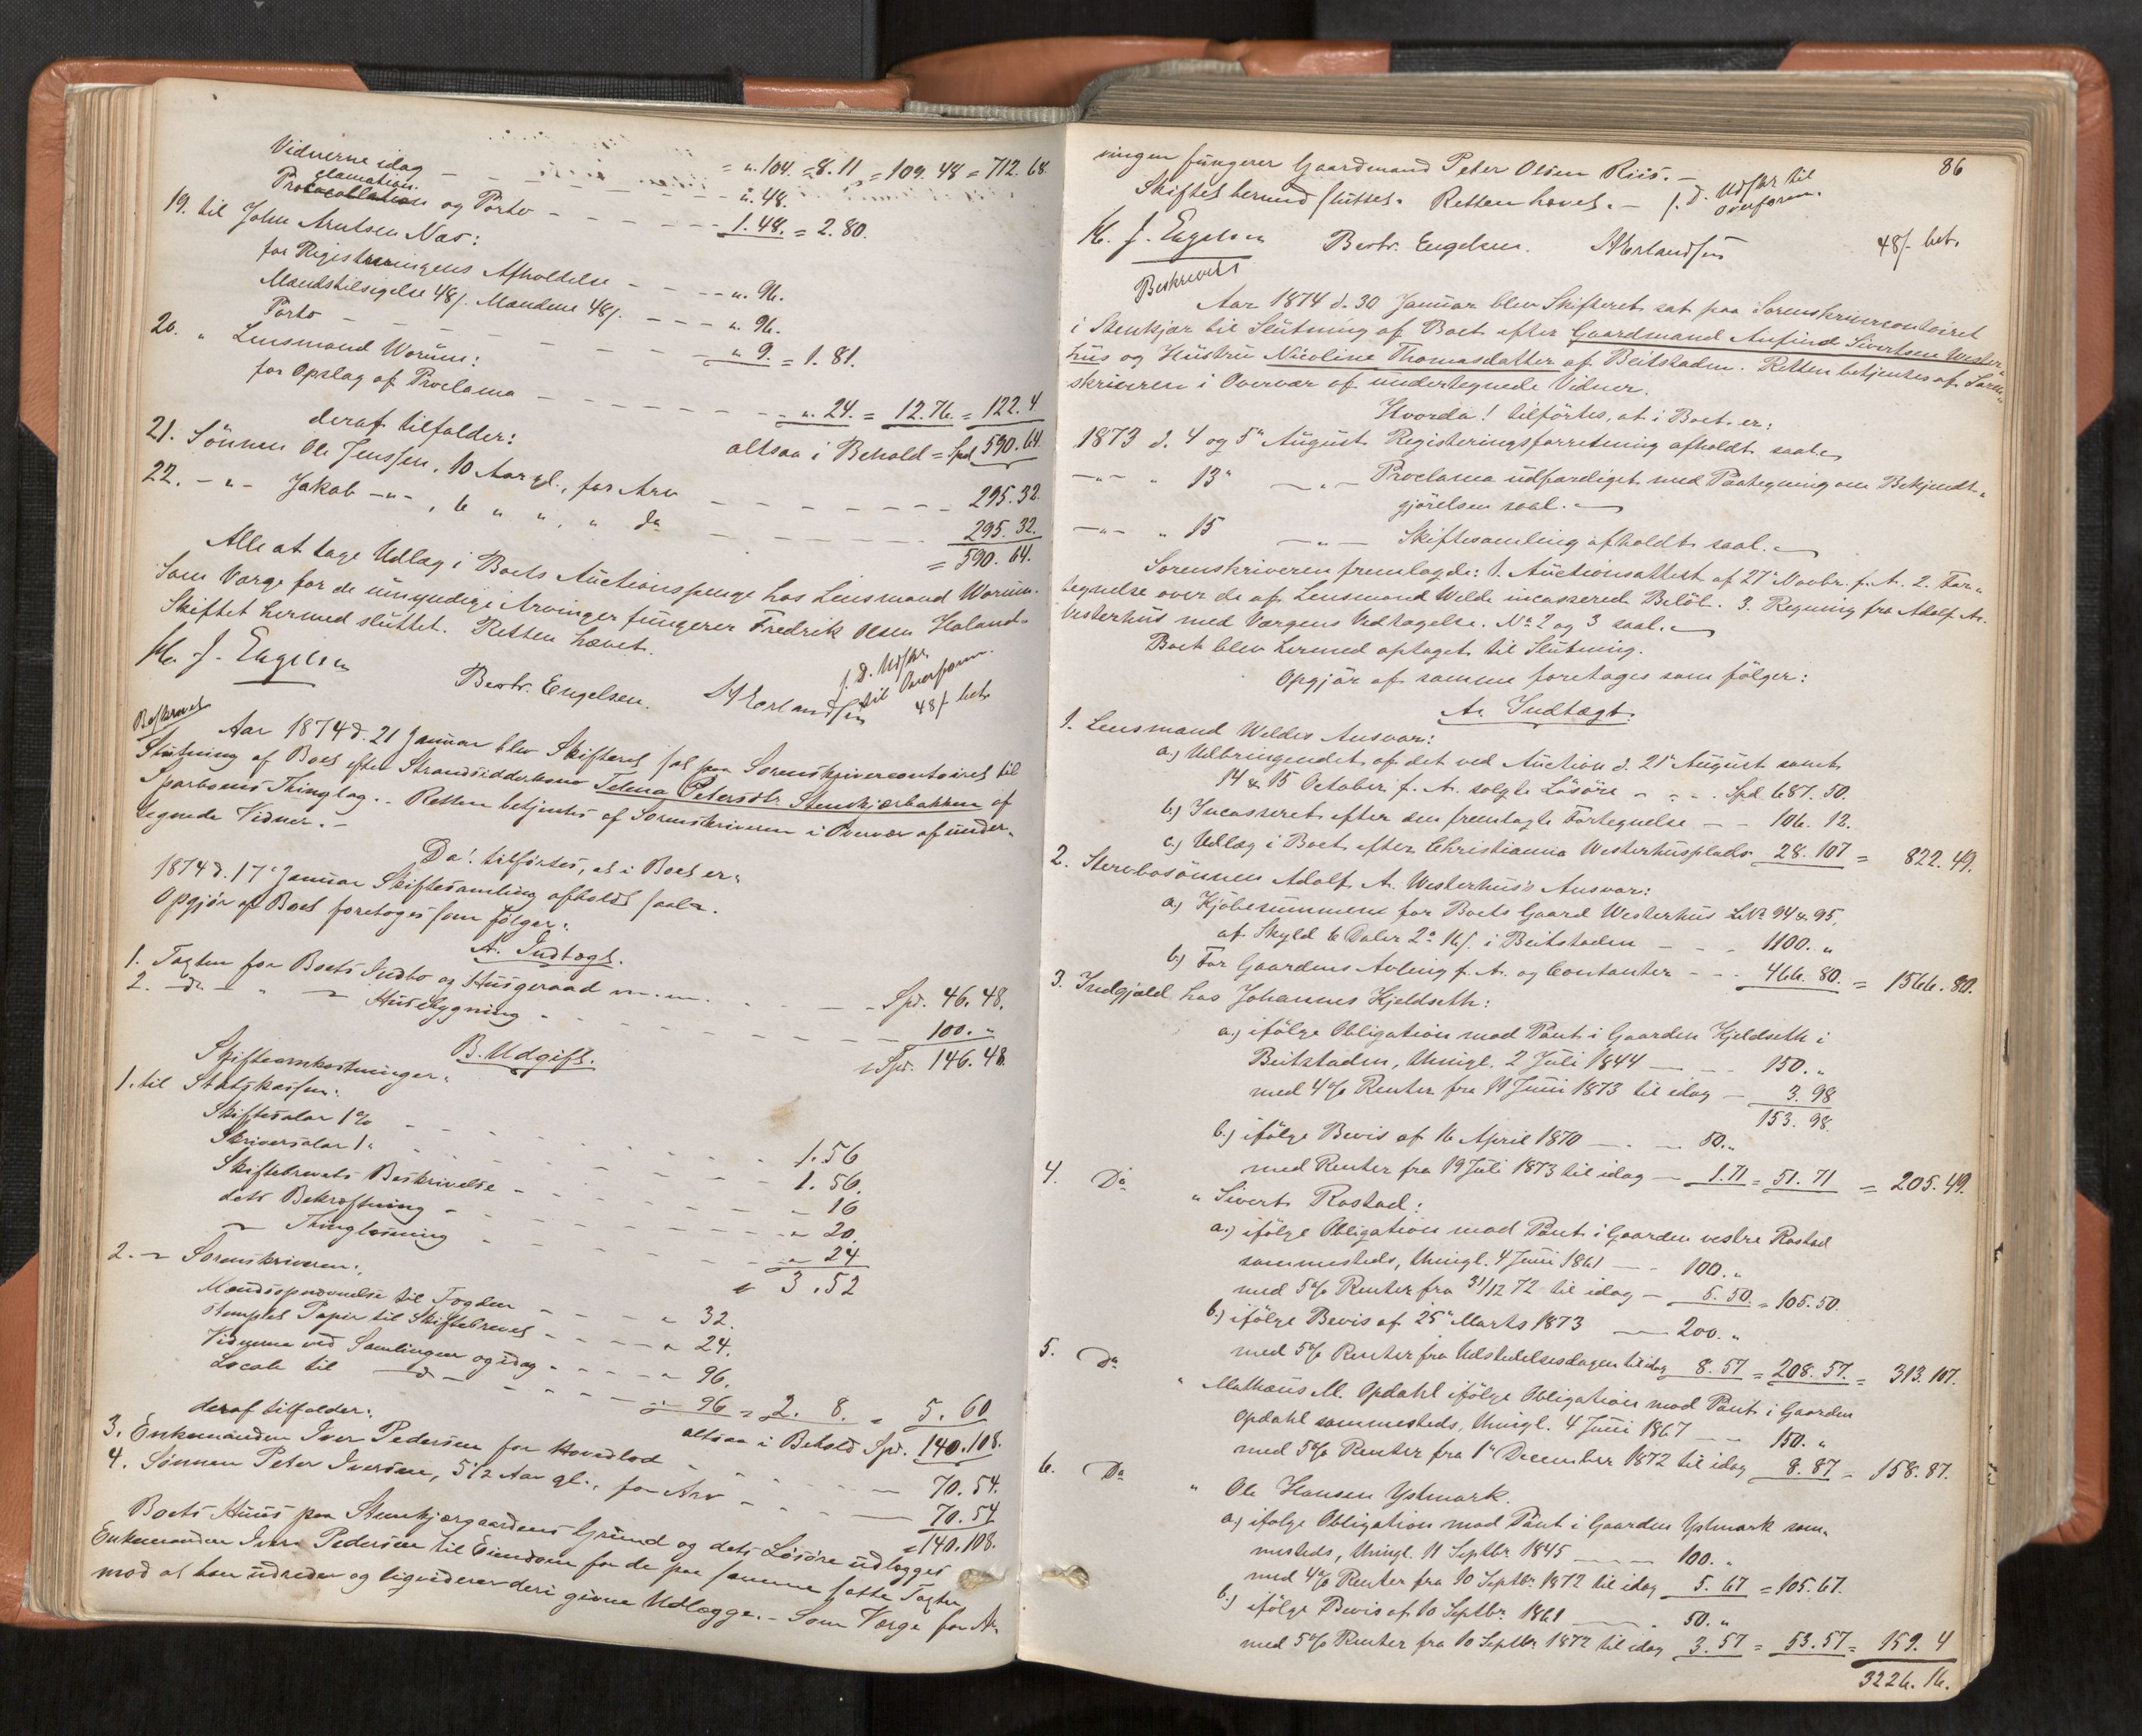 Vidnerne idag - - - - - = „.104. = 8.11 = 109.48 = 712.68
Proclamation og Porto - - - - - „.48.
1.48. = 2.80.
19. til John Arntsen Næs:
for Registreringens Afholdelse - - - - „. 96.
Mandstilsigelse 48 ß. Mændene 48 ß. - - - „. 96.
Porto - - - - - „ 9. = 1.81.
20. „ Lensmand Worum:
for Opslag af Proclama - - - - - „. 24. = 12.76. = 122.4
altsaa i Behold = Spd 590.64.
deraf tilfalder:
21. Sönnen Ole Jenssen, 10 Aar gl., for Arv - - - - - 295.32.
22. -„- Jakob -„-, 6 „ „, „ Do - - - - - 295.32.
= 590.64.
Alle at tage Udlæg i Boets Auctionspenge hos Lensmand Worum.
Som Værge for de umyndige Arvinger fungerer Fredrik Olsen Haland.
Skiftet hermed sluttet. Retten hævet.
K. J. Engelsen Bertr. Engelsen. A. Erlandsen
f. D. Udskr. til Overform. 48ß bet.
Beskrevet
Aar 1874 d. 21 Januar blev Skifteret sat paa Sorenskrivercontoiret til
Slutning af Boet efter Strandsidderkone Telena Petersdtr. Stenkjærbakken af
Sparboens Thinglag. - Retten betjentes af Sorenskriveren i Overvær af under-
tegnede Vidner. -
Da! tilførtes, at i Boet er:
1874 d. 17 Januar Skiftesamling afholdt saal.
Opgjør af Boet foretoges som følger:
A. Indtægt.
1. Taxten for Boets Indbo og Husgeraad m.m. - - - Spd. 46.48.
2. -do- „ Husbygning - - - - - 100. „
Spd. 146.48.
B. Udgift.
Skifteomkostninger:
1. til Statskassen:
Skiftesalar 1% - - - - - 1.56
Skriversalar 1 „ - - - - - 1.56.
Skiftebrevets Beskrivelse - - - - - „ 16
dets Bekræftning - - - - - „ 20.
„ Thinglæsning - - - - - „ 24
3.52
2. „ Sorenskriveren:
Mandsopnævnelse til Taxten - - - „ 32.
stemplet Papir til Skiftebrevet - - - „ 24.
Vidnerne ved Samlingen og idag - - - „ 96.
Locale til -do- - - - „ 96 = 2. 8. = 5. 60
altsaa i Behold Spd. 140.108.
deraf tilfalder:
3. Enkemanden Iver Pedersen for Hovedlod - - - 70.54.
4. Sönnen Peter Iversen, 5 1/2 Aar gl., for Arv - - - 70.54
= 140.108.
Boets Huus paa Stenkjærgaardens Grund og dets Løsøre udlægges
Enkemanden Iver Pedersen til Eiendom for de paa samme satte Taxter
mod at han udreder og ligviderer deri givne Udlægge. - Som Værge for Ar-
86
vingen fungerer Gaardmand Peter Olsen Riis. -
Skiftet hermed sluttet. Retten hævet. - f. D. Udskr. til Overform.
K. J. Engelsen Bertr. Engelsen. A. Erlandsen 48ß. bet.
Beskrevet
Aar 1874 d. 30 Januar blev Skifteret sat paa Sorenskrivercontoiret
i Stenkjær til Slutning af Boet efter Gaardmand Anfind Sivertsen Wester-
hus og Hustru Nicoline Thomasdatter af Beitstaden. Retten betjentes af Soren-
skriveren i Overvær af undertegnede Vidner.
Hvorda! tilførtes, at i Boet er:
1873 d. 4 og 5te August Registreringsforretning afholdt saal.
-„- „ 13de -„- Proclama udfærdiget med Paategning om Bekjendt-
gjørelsen saal.
-„- „ 15 -„- Skiftesamling afholdt saal.
Sorenskriveren fremlagde: 1. Auctionsattest af 27 Novbr. f. A. 2. For-
tegnelse over de af Lensmand Welde incasserede Beløb. 3. Regning fra Adolf A.
Westerhus med Værgens Vedtagelse. No 2 og 3 saal.
Boet blev hermed optaget til Slutning.
Opgjør af samme foretages som følger:
A. Indtægt.
1. Lensmand Weldes Ansvar:
a.) Udbringendet af det ved Auction d. 21 August samt
14 & 15 October f. A. solgte Løsøre - - Spd. 687. 50.
b.) Incasseret efter den fremlagte Fortegnelse - - 106. 12.
c.) Udlæg i Boet efter Christianna Westerhusplads 28. 107 = 822. 49.
2. Stervbosönnen Adolf A. Westerhus's Ansvar:
a.) Kjøbesummen for Boets Gaard Westerhus LNo 94 & 95,
af Skyld 6 Daler 2 o 16 ß. i Beitstaden - - - 1100. „
b.) For Gaardens Avling f. A. og Contanter - - - 466. 80. = 1566. 80.
3. Indgjæld hos Johannes Kjeldseth:
a.) ifølge Obligation mod Pant i Gaarden Kjeldseth i
Beitstaden, thingl. 2 Juli 1844 - - - 150. „
med 4% Renter fra 11 Juni 1873 til idag - 3. 98
153. 98.
b.) ifølge Bevis af 16 April 1870 - - - 50. „
med Renter fra 19 Juli 1873 til idag - 1.71 = 51. 71 = 205. 49.
4. Do „ Sivert Rostad:
a.) ifølge Obligation mod Pant i Gaarden vestre Rostad
sammesteds, thingl. 4 Juni 1861 - - 100. „
med 5% Renter fra 31/12 72 til idag - 5. 50. = 105.50.
b.) ifølge Bevis af 25de Marts 1873 - 200. „
med 5% Renter fra Udstedelsesdagen til idag 8. 57 = 208. 57. = 313. 107.
5. Do „ Mathæus M. Opdahl ifølge Obligation mod Pant i Gaarden
Opdahl sammesteds, thingl. 4 Juni 1867 - - 150. „
med 5% Renter fra 1te December 1872 til idag 8. 87 = 158. 87.
6. Do „ Ole Hansen Ystmark.
a.) ifølge Obligation mod Pant i Gaarden Ystmark sam-
mesteds, thingl. 11 Septbr 1845 - - - 100. „
med 4% Renter fra 10 Septbr. 1872 til idag 5. 67 = 105.67.
b.) ifølge Bevis af 10 Septbr. 1861 - - 50. „
med 5% Renter fra 10 Septbr 1872 til idag 3. 57 = 53.57 = 159. 4
3226. 16.